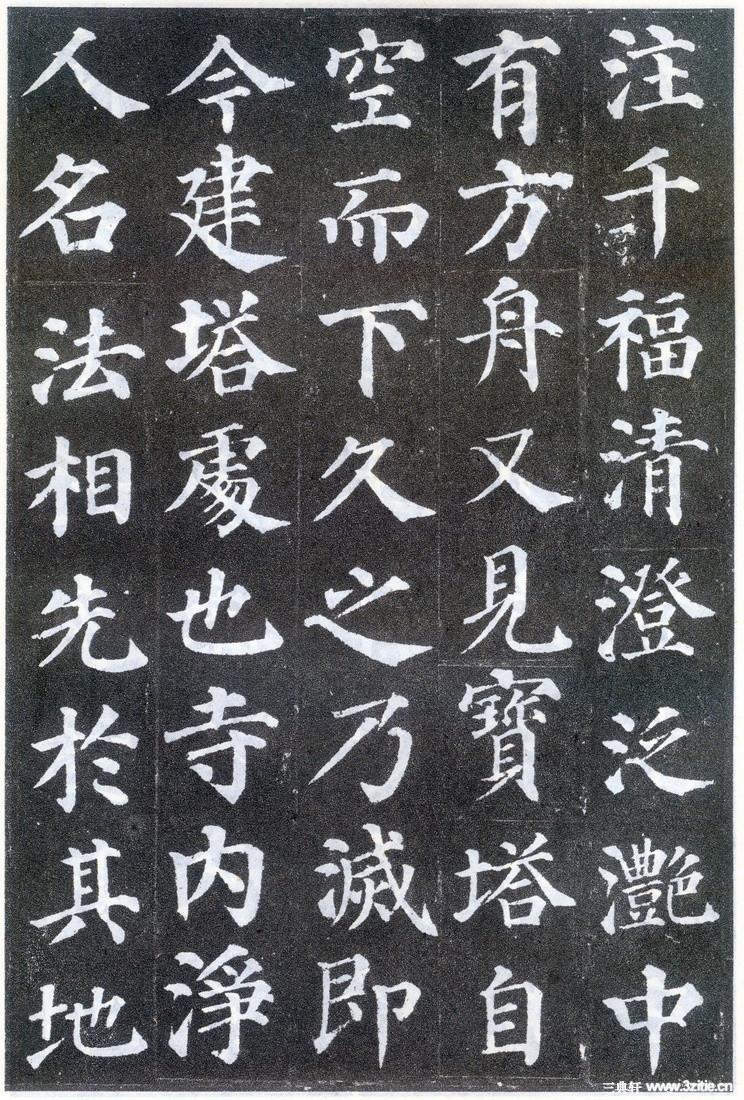 注千福清澄泛灔中
有方舟又見寶塔自
空而下久之乃滅即
今建塔處也寺内淨
人名法相先於其地
三典轩 www.3zitie.cn